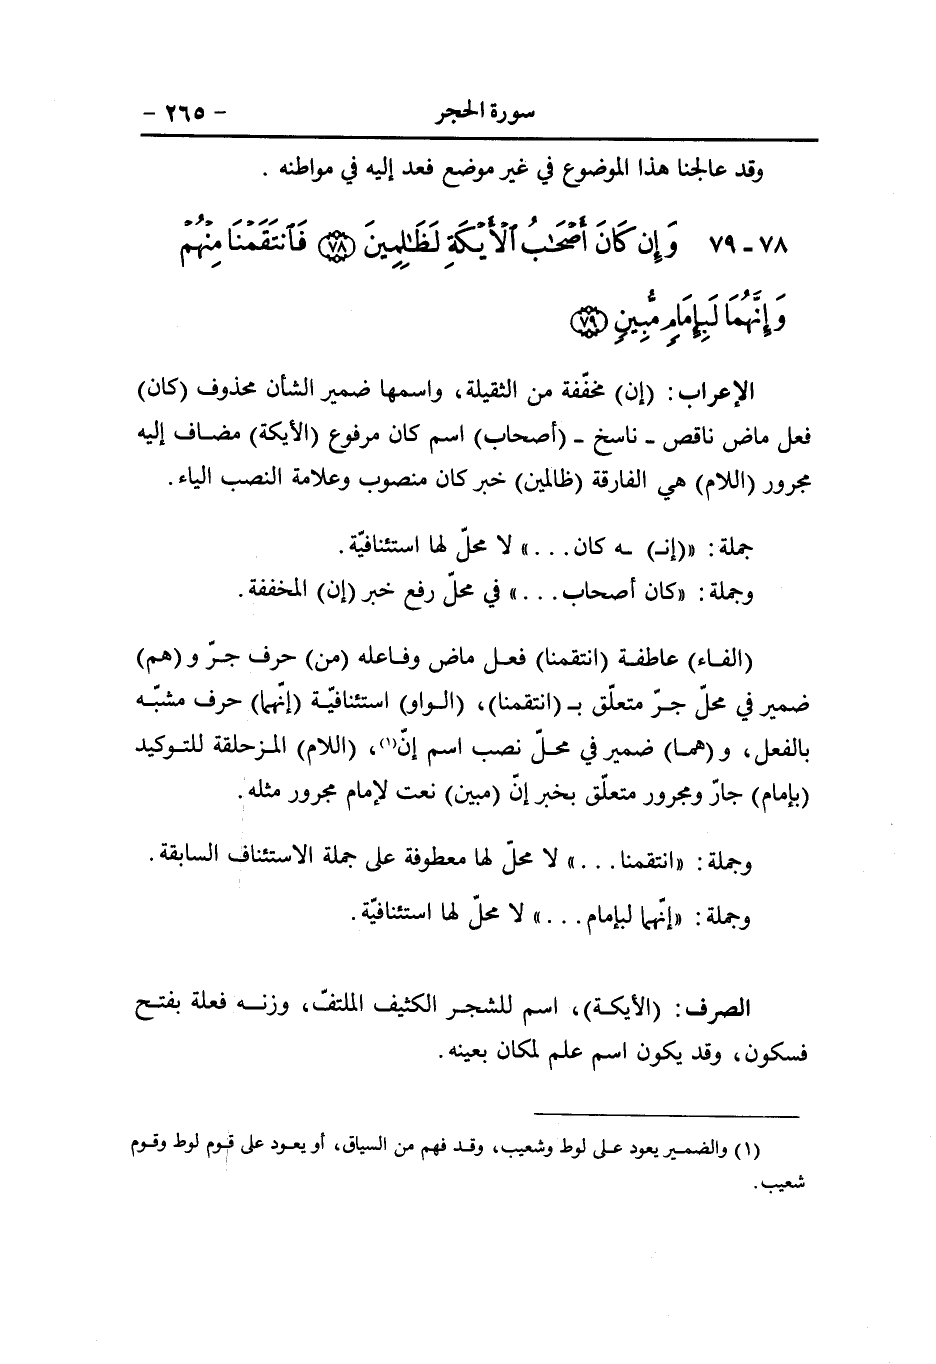 سورة الحجر - ٢٦٥ -
وقد عالجنا هذا الموضوع في غير موضع فعد إليه في مواطنه .
٧٨ - ٧٩ وَإِن كَانَ أَصْحَٰبُ ٱلْأَيْكَةِ لَظَٰلِمِينَ ﴿٧٨﴾ فَٱنتَقَمْنَا مِنْهُمْ
وَإِنَّهُمَا لَبِإِمَامٍ مُّبِينٍ ﴿٧٩﴾
الإعراب : (إن) مخفّفة من الثقيلة، واسمها ضمير الشأن محذوف (كان)
فعل ماض ناقص ـ ناسخ ـ (أصحاب) اسم كان مرفوع (الأيكة) مضاف إليه
مجرور (اللام) هي الفارقة (ظالمين) خبر كان منصوب وعلامة النصب الياء .
جملة : «(إنـ) ـه كان . . . » لا محلّ لها استئنافيّة .
وجملة : «كان أصحاب . . . » في محلّ رفع خبر (إن) المخففة .
(الفاء) عاطفة (انتقمنا) فعل ماض وفاعله (من) حرف جرّ و (هم)
ضمير في محلّ جرّ متعلّق بـ (انتقمنا)، (الواو) استئنافيّة (إنّهما) حرف مشبّه
بالفعل، و (هما) ضمير في محلّ نصب اسم إنّ(١)، (اللام) المزحلقة للتوكيد
(بإمام) جارّ ومجرور متعلّق بخبر إنّ (مبين) نعت لإمام مجرور مثله .
وجملة : «انتقمنا . . . » لا محلّ لها معطوفة على جملة الاستئناف السابقة .
وجملة : «إنّهما لبإمام . . . » لا محلّ لها استئنافيّة .
الصرف : (الأيكة)، اسم للشجر الكثيف الملتفّ، وزنه فعلة بفتح
فسكون، وقد يكون اسم علم لمكان بعينه .
(١) والضمير يعود على لوط وشعيب، وقد فهم من السياق، أو يعود على قوم لوط وقوم
شعيب .